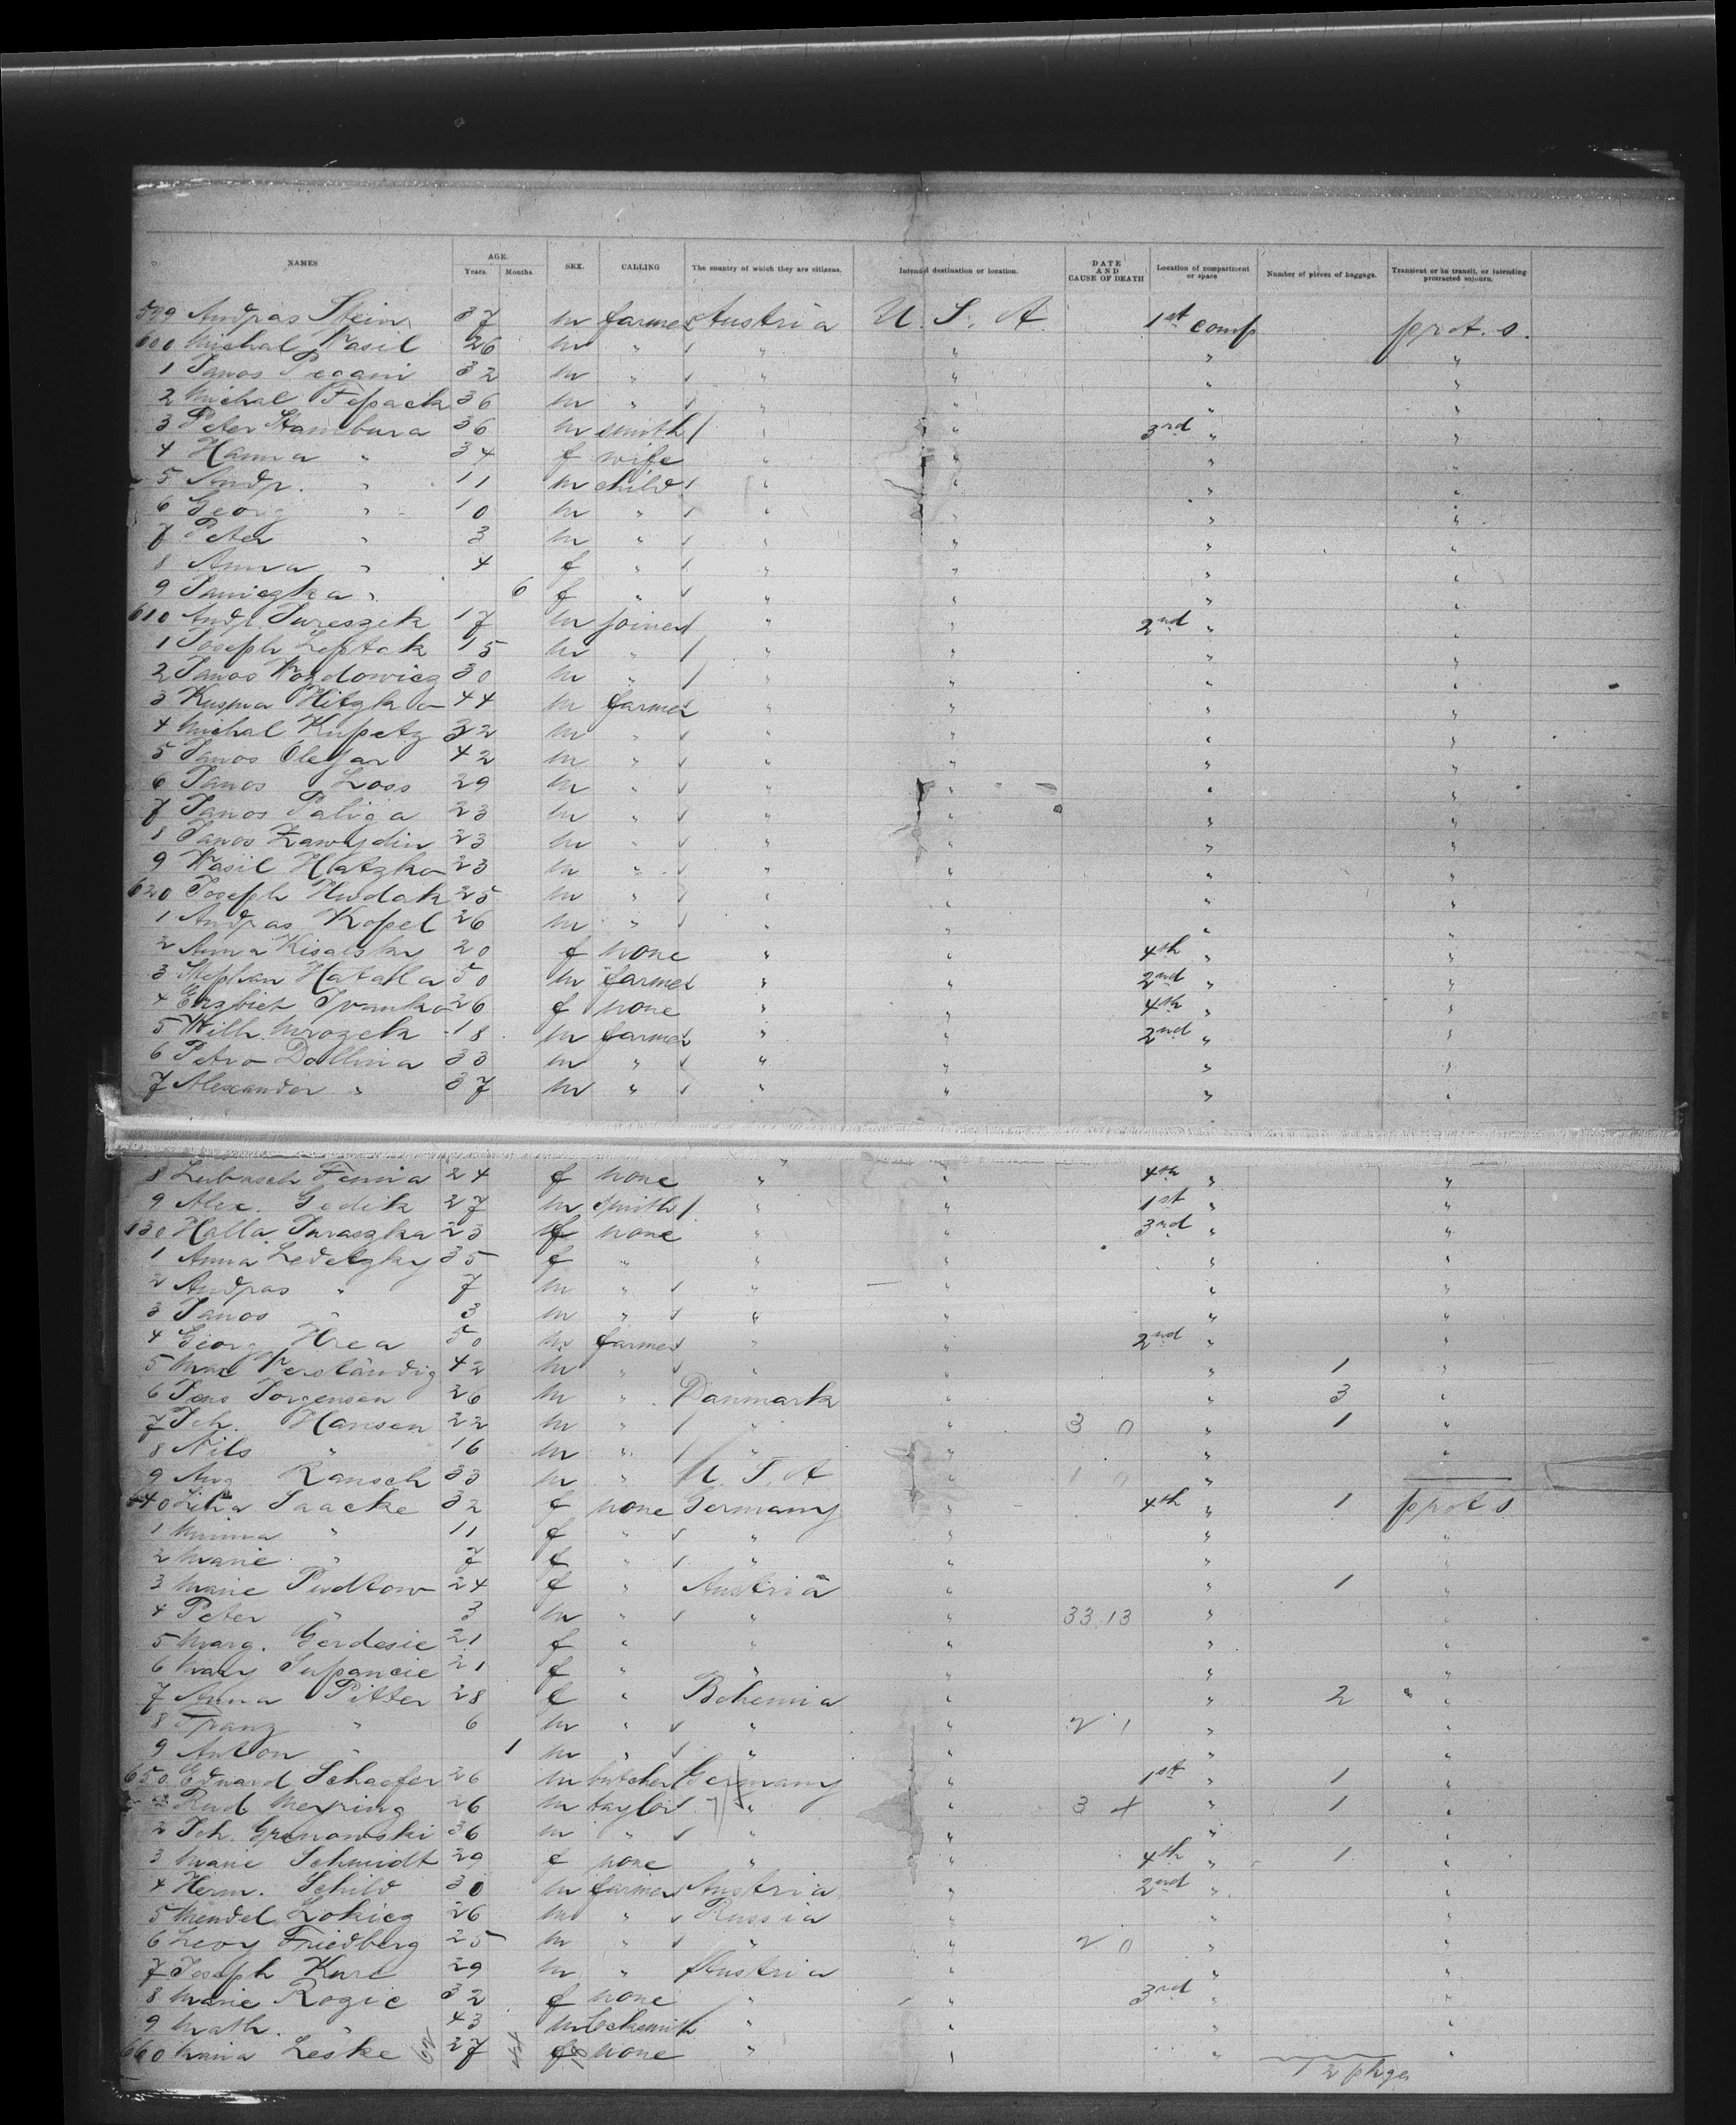 NAMES AGE. Years. Months. SEX. CALLING The country of which they are citizens. Intended destination or location. DATE AND CAUSE OF DEATH Location of compartment or space Number of pieces of baggage. Transient or in transit, or intending protracted sojourn.
599 Andras Stein 37 m farmer Austria U. S. A. 1st comp prot. s.
600 Michal Wasil 26 m " " " " "
1 Janos 32 m " " " " "
2 Michal 36 m " " " " "
3 Peter Stambura 36 m smith " " 3rd " "
4 Hanna " 34 f wife " " " "
5 Andr. " 11 m child " " " "
6 Georg " 10 m " " " " "
7 Peter " 3 m " " " " "
8 Anna " 4 f " " " " "
9 " 6 f " " " " "
610 Andr. Jureszik 17 m joiner " " 2nd " "
1 Joseph Leptak 15 m " " " " "
2 Janos 30 m " " " " "
3 Kusma Hitzka 44 m farmer " " " "
4 Michal Kupetz 32 m " " " " "
5 Janos Olejar 42 m " " " " "
6 Janos Loss 29 m " " " " "
7 Janos Paliga 23 m " " " " "
8 Janos Zawydin 23 m " " " " "
9 Wasil Hatzka 23 m " " " " "
620 Joseph Hudak 25 m " " " " "
1 Andras Kopel 26 m " " " " "
2 Anna 20 f none " " 4th " "
3 Stephan Hatalla 50 m farmer " " 2nd " "
4 Erzbiet Ivanka 26 f none " " 4th " "
5 Wilh. Mrozek 18 m farmer " " 2nd " "
6 Petro Dollina 33 m " " " " "
7 Alexander " 37 m " " " " "
8 Lubasch Fenna 24 f none " " 4th " "
9 Alex. Gedik 27 m smith " " 1st " "
630 Halla Juraszka 23 f none " " 3rd " "
1 Anna Ledetzky 35 f " " " " "
2 Andras " 7 m " " " " "
3 Janos " 3 m " " " " "
4 Georg Hrea 50 m farmer " " 2nd " "
5 Max Verständig 42 m " " " " 1 "
6 Jens Jorgensen 26 m " Danmark " " 3 "
7 Joh. Hansen 22 m " " " 3 0 " 1 "
8 Nils " 16 m " " " " "
9 Aug Rausch 33 m " U. S. A " "
640 Lina Saacke 32 f none Germany " 4th " 1 prot s
1 Minna " 11 f " " " " "
2 Marie " 7 f " " " " "
3 Marie Pudlow 24 f " Austria " " 1 "
4 Peter " 3 m " " " 33,13 " "
5 Marg. Gerdesic 21 f " " " " "
6 Mary Supancic 21 f " " " " "
7 Anna Pitter 28 f " Bohemia " " 2 "
8 Franz " 6 m " " " 2 1 " "
9 Anton " 1 m " " " " "
650 Eduard Schaefer 26 m butcher Germany " 1st " 1 "
Rud Mexring 26 m taylor " " 3 4 " 1 "
2 Joh. Gronowski 36 m " " " " "
3 Marie Schmidt 29 f none " " 4th " 1 "
4 Herm. Schild 30 m farmer Austria " 2nd " "
5 Mendel Lokicz 26 m " Russia " " "
6 Levy Friedberg 25 m " " " 2 0 " "
7 Joseph Kure 29 m " Austria " " "
8 Marie Rozic 32 f none " " 3rd " "
9 Math. " 43 m locksmith " " " "
660 Maria Leske 27 f none " " " "
62 44 18 12 pkges